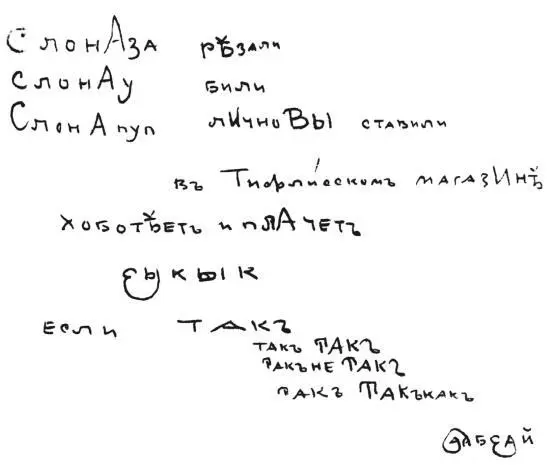 СлонАза рѢзали
слонАу били
СлонАпуп лИчноВЫ ставили
въ Тифлисскомъ магазИнѢ
хоботѢетъ и плАчетъ
если ТАКЪ
такъ ТАКЪ
ТАКЪ
ТАКЪкакъ